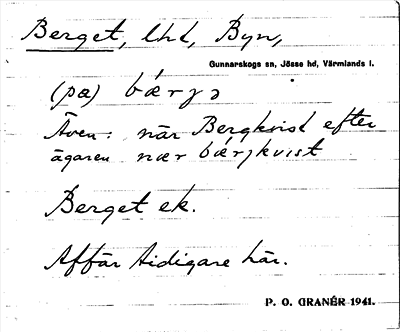 Berget, lhd, Byn,
Gunnarskogs sn, Jösse hd, Värmlands l.
(pa) bǽrjə
Även: när Bergkvist efter
ägaren nær bǽrjkvist
Berget ek.
Affär tidigare här.
P. O. GRANÉR 1941.